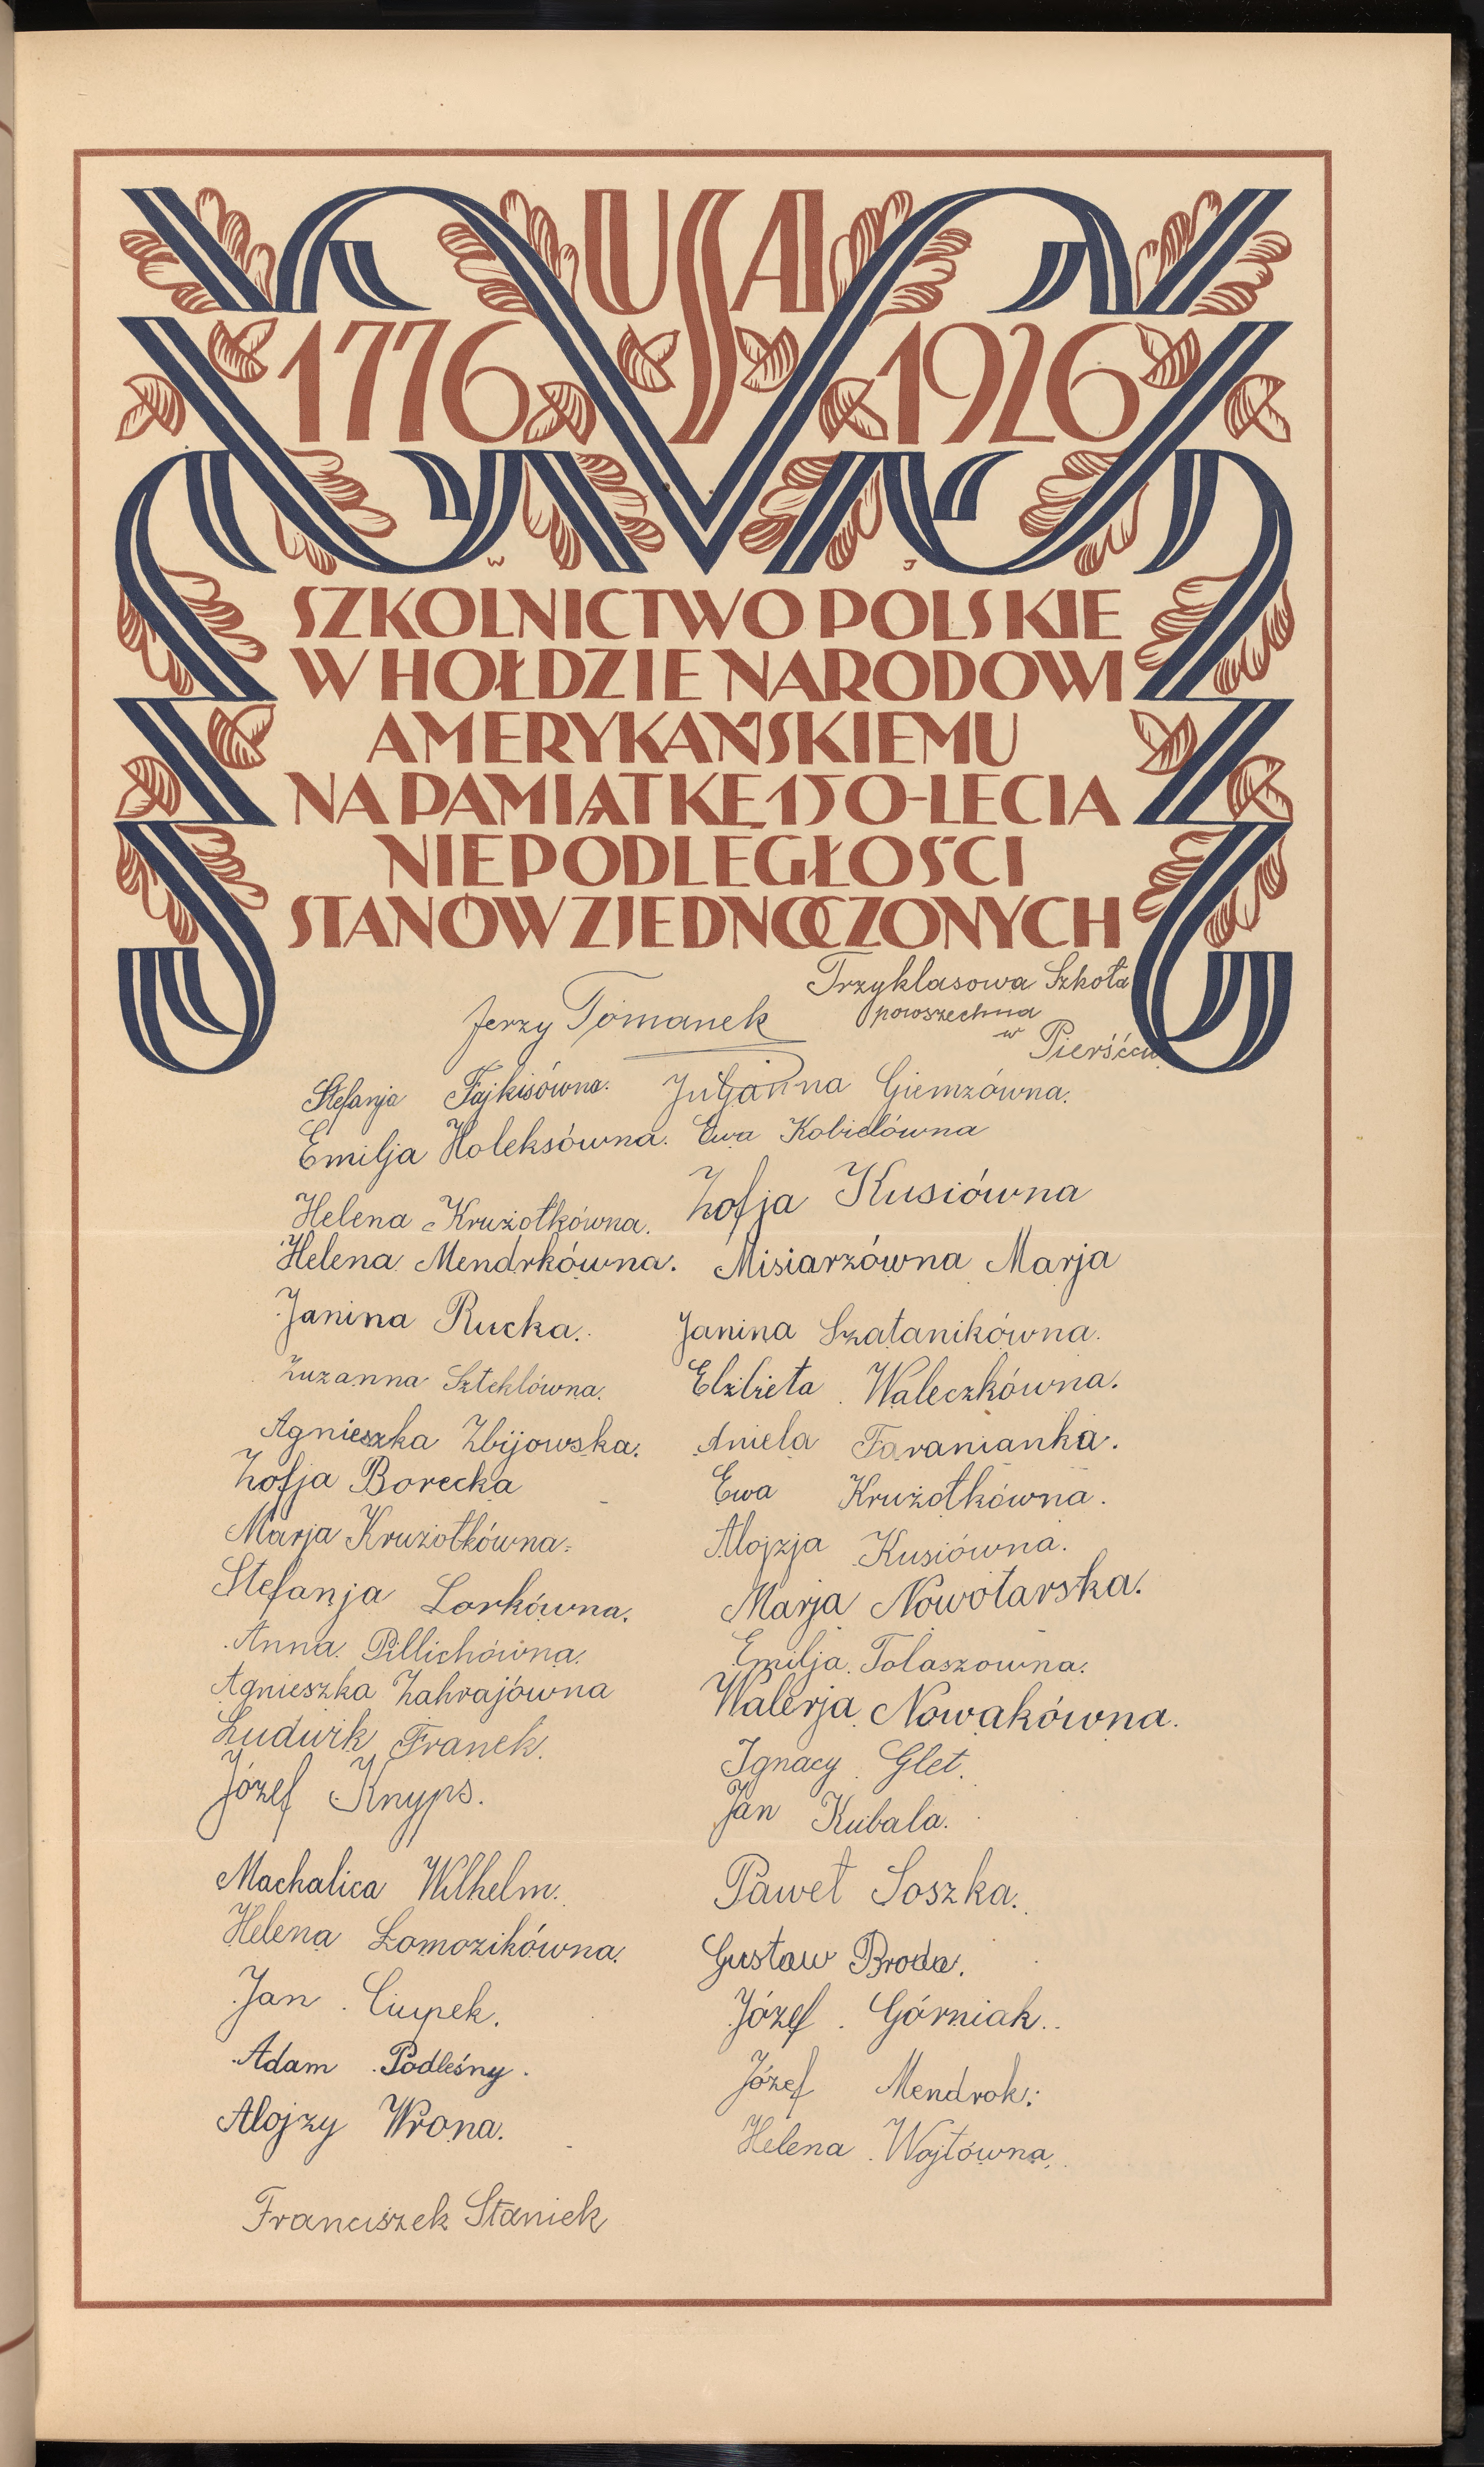 USA
1776 1926
W J
SZKOLNICTWO POLSKIE
W HOŁDZIE NARODOWI
AMERYKAŃSKIEMU
NA PAMIĄTKĘ 150-LECIA
NIEPODLEGŁOŚCI
STANÓW ZJEDNOCZONYCH
Trzyklasowa Szkoła
powszechna
w Pierśćcu
Jerzy Tomanek
Stefanja Fajkisówna. Juljanna Giemzówna.
Emilja Holeksówna. Ewa Kobielówna
Helena Krużołkówna. Zofja Kusiówna
Helena Mendrkówna. Misiarzówna Marja
Janina Rucka. Janina Szatanikówna.
Zuzanna Szteklówna. Elżbieta Waleczkówna.
Agnieszka Zbijowska. Aniela Faranianka.
Zofja Borecka Ewa Krużołkówna.
Marja Krużołkówna. Alojzja Kusiówna.
Stefanja Lorkówna. Marja Nowotarska.
Anna Pillichówna. Emilja Tolaszowna.
Agnieszka Zahrajówna Walerja Nowakówna.
Ludwik Franek. Ignacy Glet.
Józef Knyps. Jan Kubala.
Machalica Wilhelm. Paweł Soszka.
Helena Łomozikówna. Gustaw Broda.
Jan Ciupek. Józef Górniak.
Adam Podleśny. Józef Mendrok.
Alojzy Wrona. Helena Wojtówna.
Franciszek Staniek